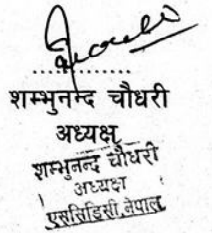 ..............
शम्भुनन्द चौधरी
अध्यक्ष
शम्भुनन्द चौधरी
अध्यक्ष
एससिडिसी नेपाल